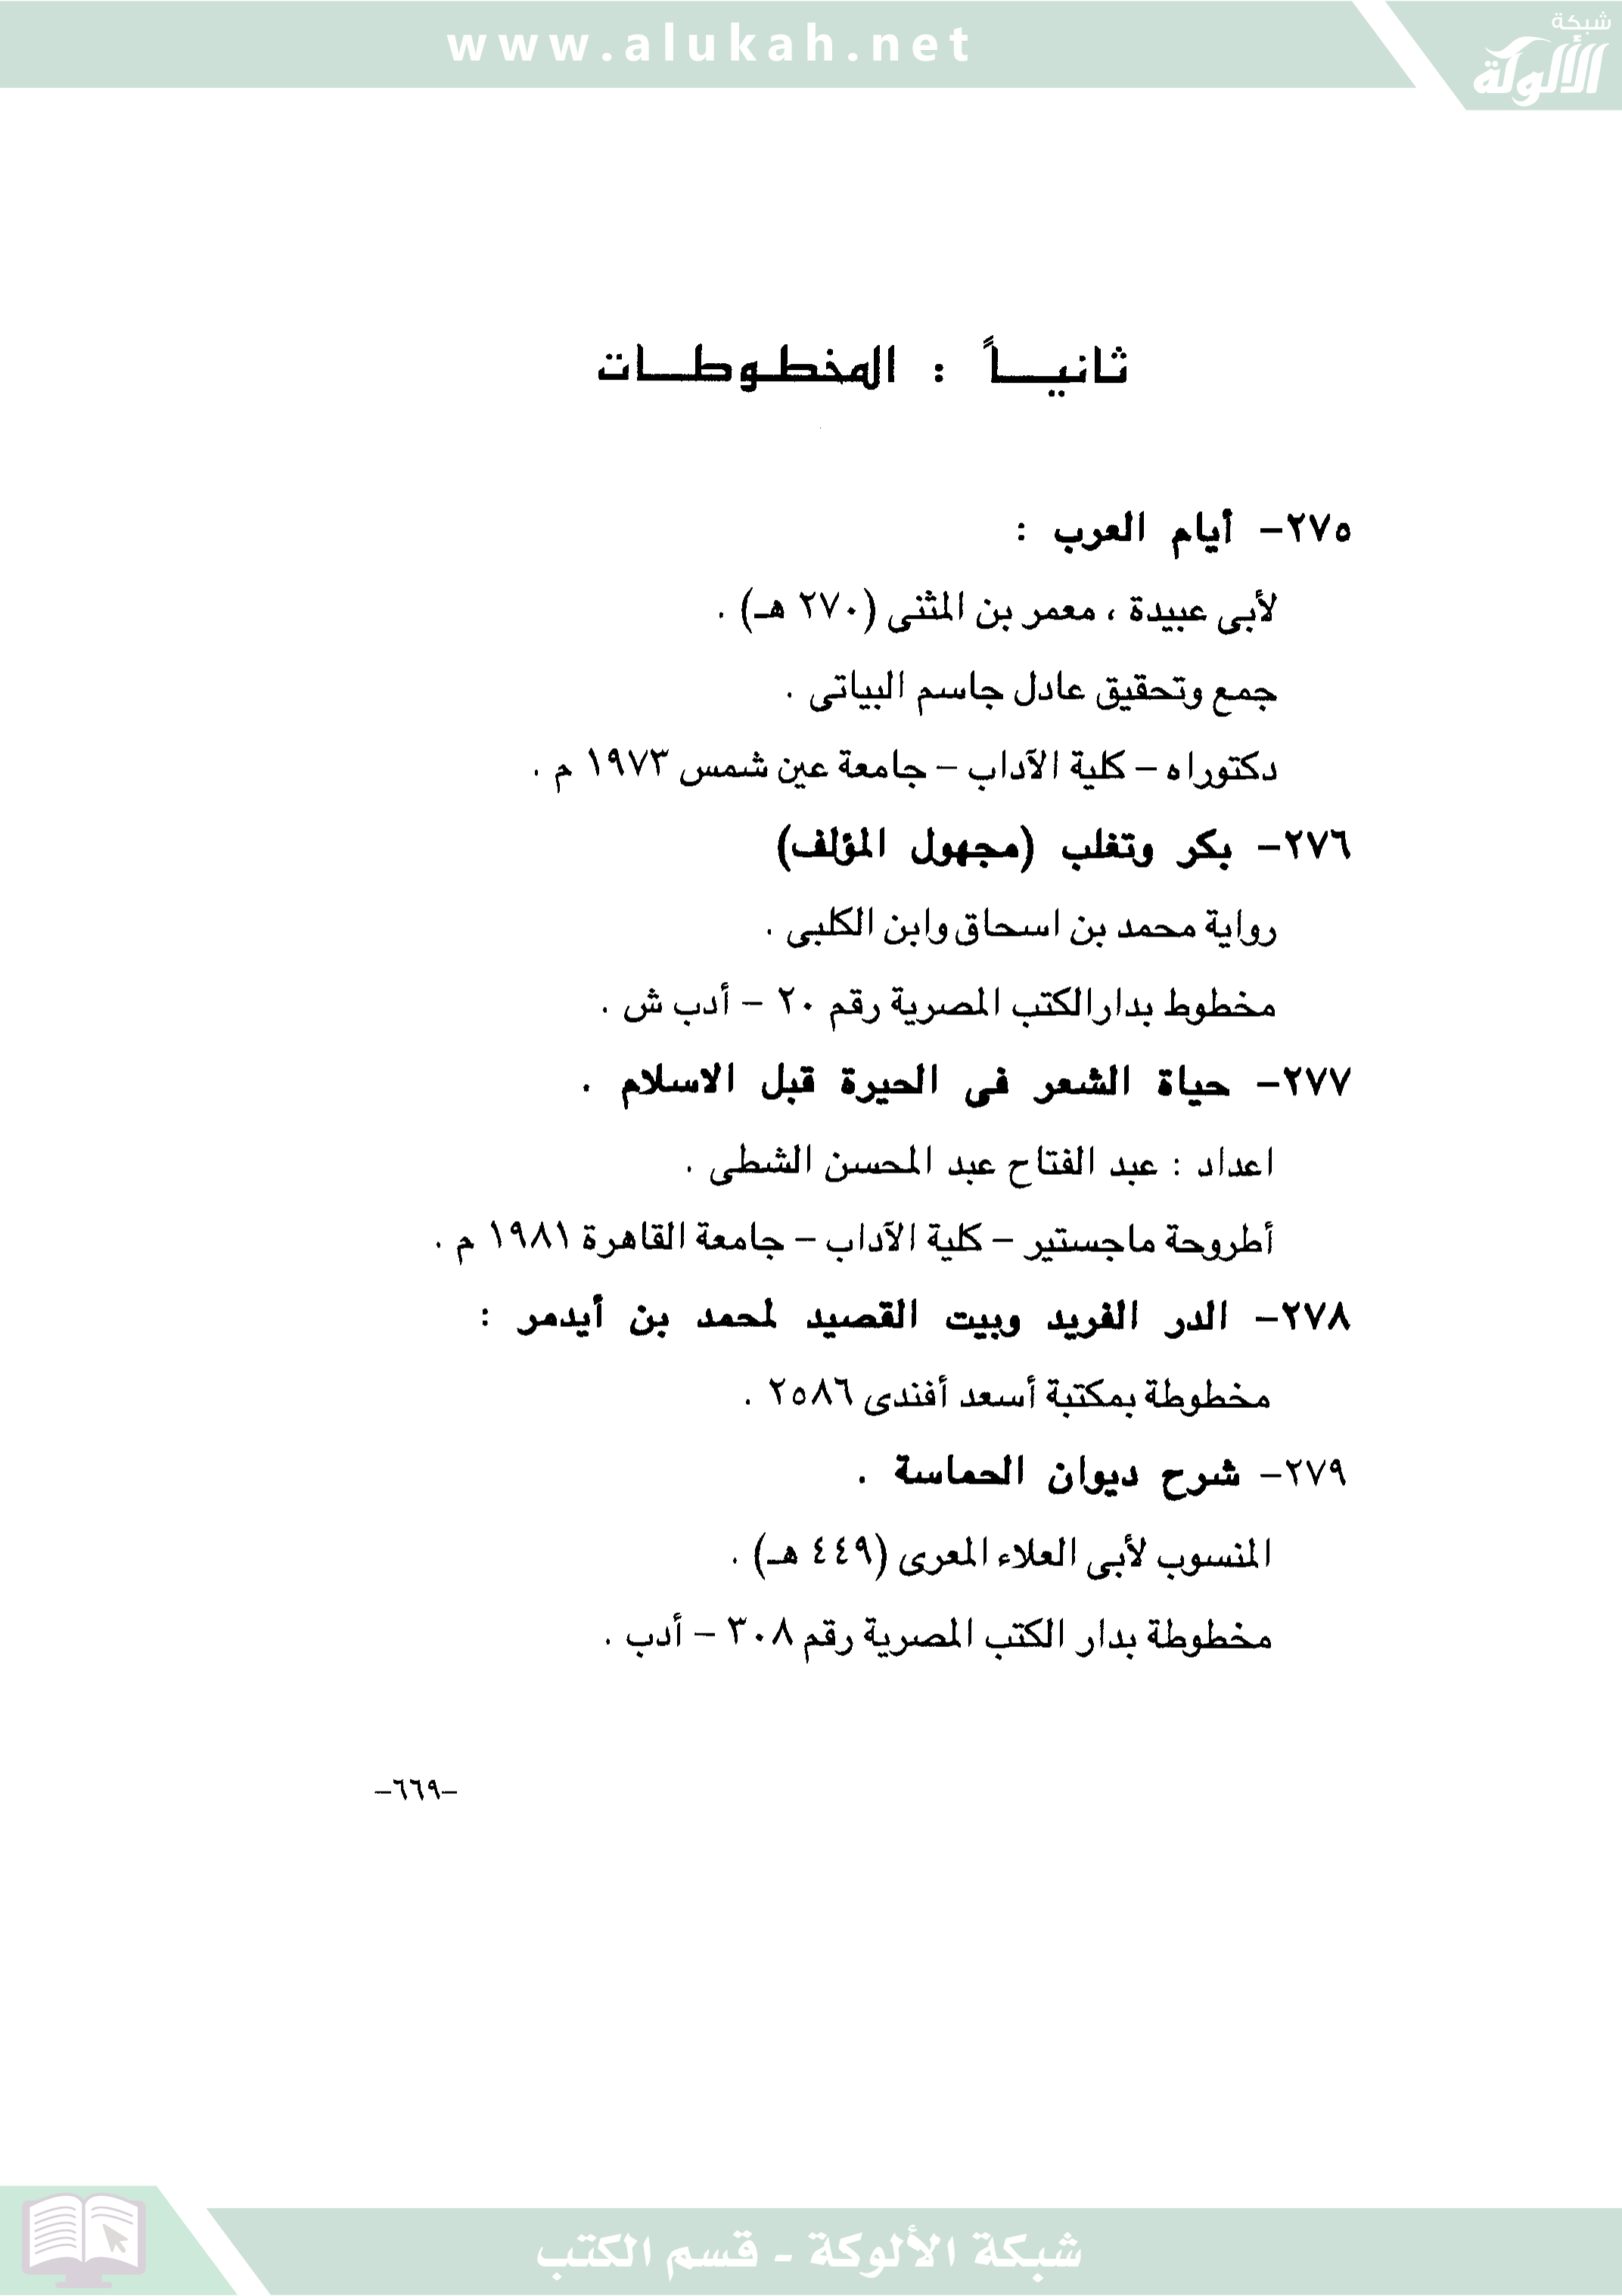 www.alukah.net
شبكة
الألوكة
ثانيـــاً : المخطـوطـــات
٢٧٥– أيام العرب :
لأبى عبيدة ، معمر بن المثنى (٢٧٠ هـ) .
جمع وتحقيق عادل جاسم البياتى .
دكتوراه – كلية الآداب – جامعة عين شمس ١٩٧٣ م .
٢٧٦– بكر وتغلب (مجهول المؤلف)
رواية محمد بن اسحاق وابن الكلبى .
مخطوط بدارالكتب المصرية رقم ٢٠ – أدب ش .
٢٧٧– حياة الشعر فى الحيرة قبل الاسلام .
اعداد : عبد الفتاح عبد المحسن الشطى .
أطروحة ماجستير – كلية الآداب – جامعة القاهرة ١٩٨١ م .
٢٧٨– الدر الفريد وبيت القصيد لمحمد بن أيدمر :
مخطوطة بمكتبة أسعد أفندى ٢٥٨٦ .
٢٧٩– شرح ديوان الحماسة .
المنسوب لأبى العلاء المعرى (٤٤٩ هـ) .
مخطوطة بدار الكتب المصرية رقم ٣٠٨ – أدب .
–٦٦٩–
شبكة الألوكة - قسم الكتب